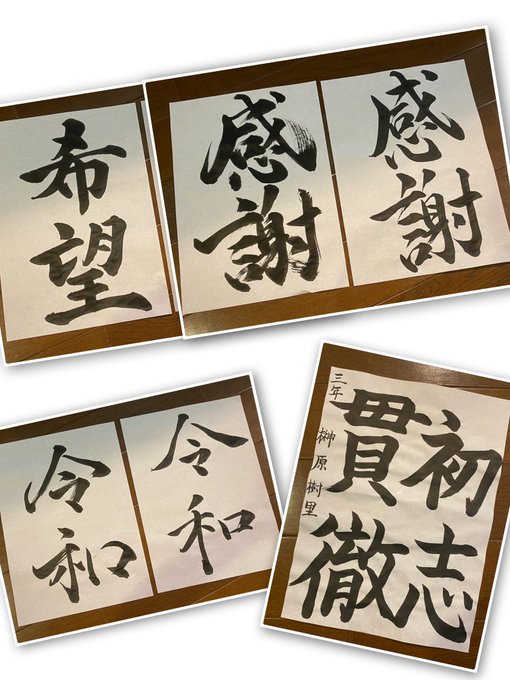 希望
感謝
感謝
令和
令和
初志
貫徹
三年 榊原樹里